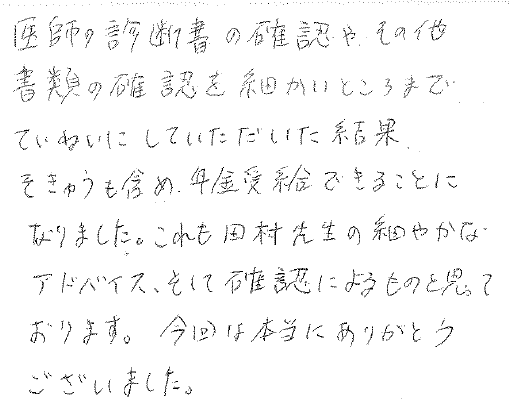 医師の診断書の確認や、その他
書類の確認を細かいところまで
ていねいにしていただいた結果、
そきゅうも含め、年金受給できることに
なりました。これも田村先生の細やかな
アドバイス、そして確認によるものと思って
おります。今回は本当にありがとう
ございました。